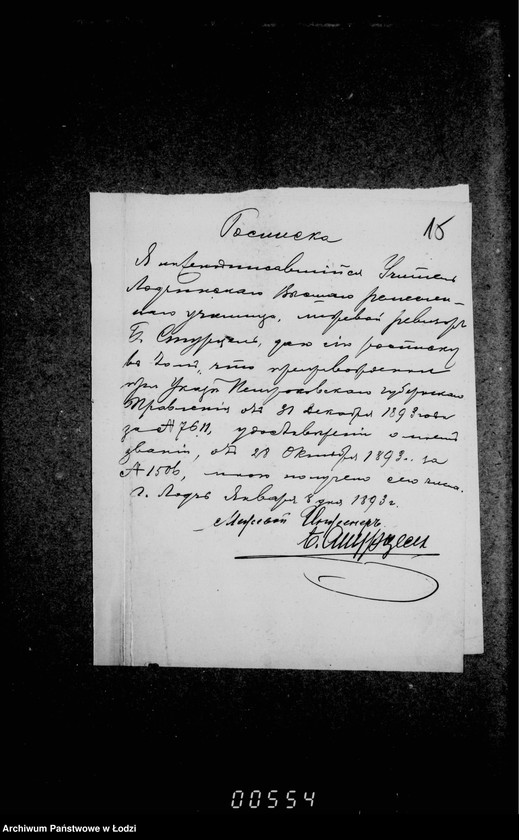 Росписка
15
Я нижеподписавшійся Учитель
Лодзинскаго Высшаго ремеслен-
наго училища,
Б. даю сію росписку
въ томъ, что препровожденный
при Указѣ Петроковскаго Губернскаго
Правленія отъ 31 Декабря 1893 года
за № 7611, о моемъ
званіи, отъ 28 Октября 1893 г. за
№ 1506, мною получено сего числа.
г. Лодзь Января 8 дня 1893 г.
Инженеръ
00554
Archiwum Państwowe w Łodzi